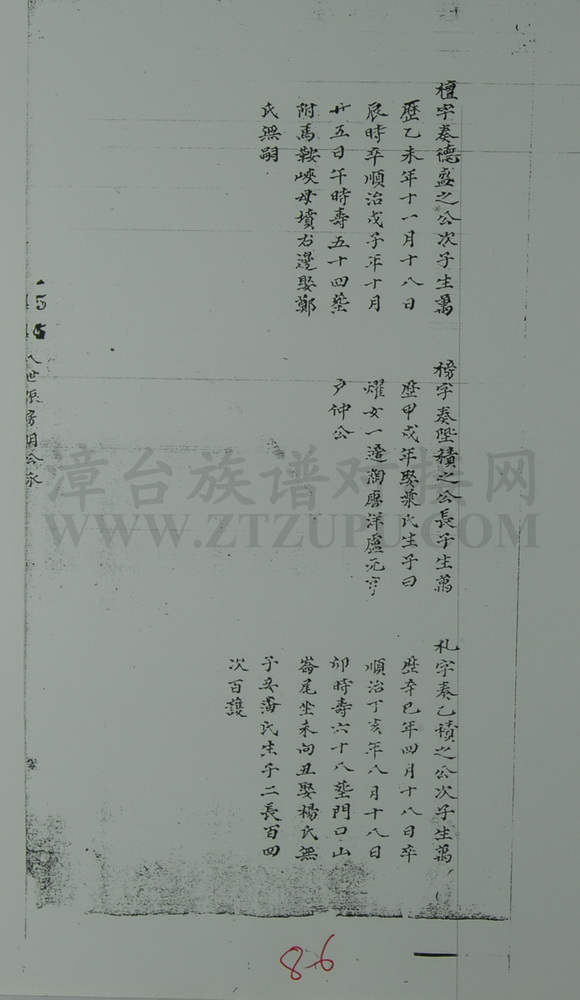 檀字奏德盛之公次子生萬
歷乙未年十一月十八日
辰時卒順治戊子年十月
廿五日午時壽五十四葬
附馬鞍峽母墳右邊娶鄭
氏無嗣
榜字奏陞積之公長子生萬
歷甲戌年娶葉氏生子曰
耀女一適潤唐洋盧元亨
尹仲公
札字奏乙積之公次子生萬
歷辛巳年四月十八日卒
順治丁亥年八月十八日
卯時壽六十八葬門口山
崙尾坐未向丑娶楊氏無
子妾蒲氏生子二長百四
次百護
漳台族谱对接网
WWW.ZTZUPU.COM
86